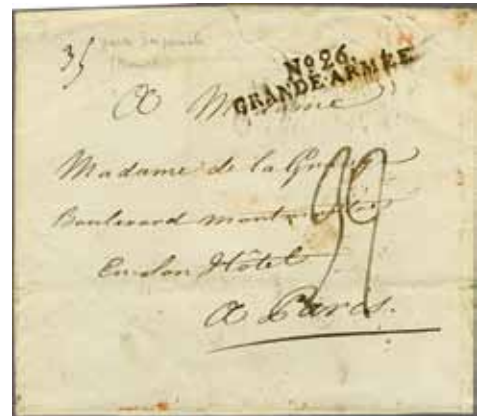 35
No 26.
GRANDE ARMÉE
A Madame
Madame de la
Boulevard
En son Hôtel
A Paris.